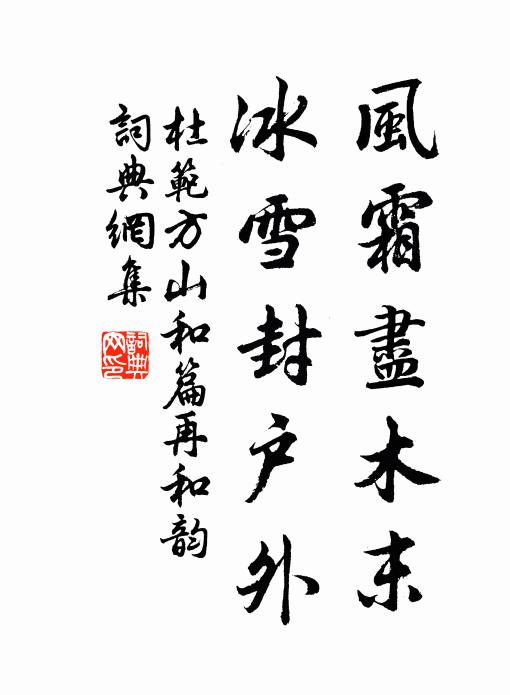 風霜盡木末
冰雪封戶外
杜範方山和篇再和韵
詞典網集
詞典網印